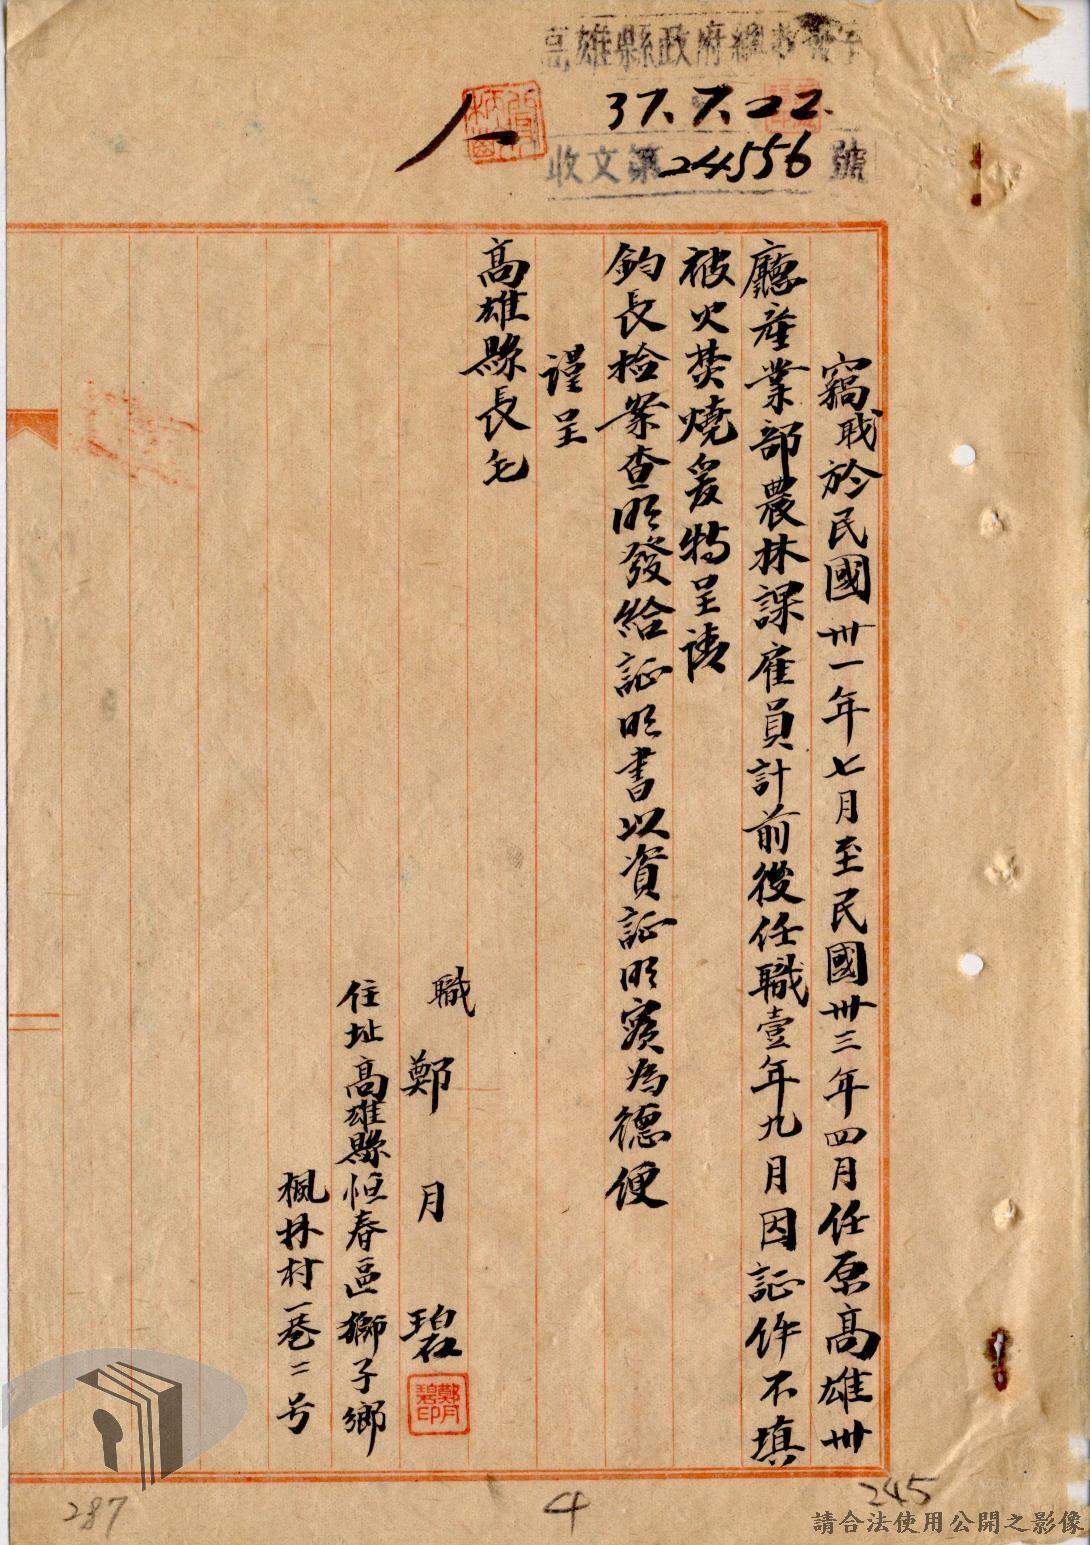 高雄縣政府總收發室
37.7.22.
收文第24556號
竊職於民國卅一年七月至民國卅三年四月任原高雄州
廳產業部農林課雇員計前後任職壹年九月因証件不填
被火焚燒爰特呈請
鈞長檢案查明發給証明書以資証明實為德便
謹呈
高雄縣長毛
職鄭月碧
鄭月碧印
住址高雄縣恒春區獅子鄉
楓林村一巷二号
287
4
245
請合法使用公開之影像